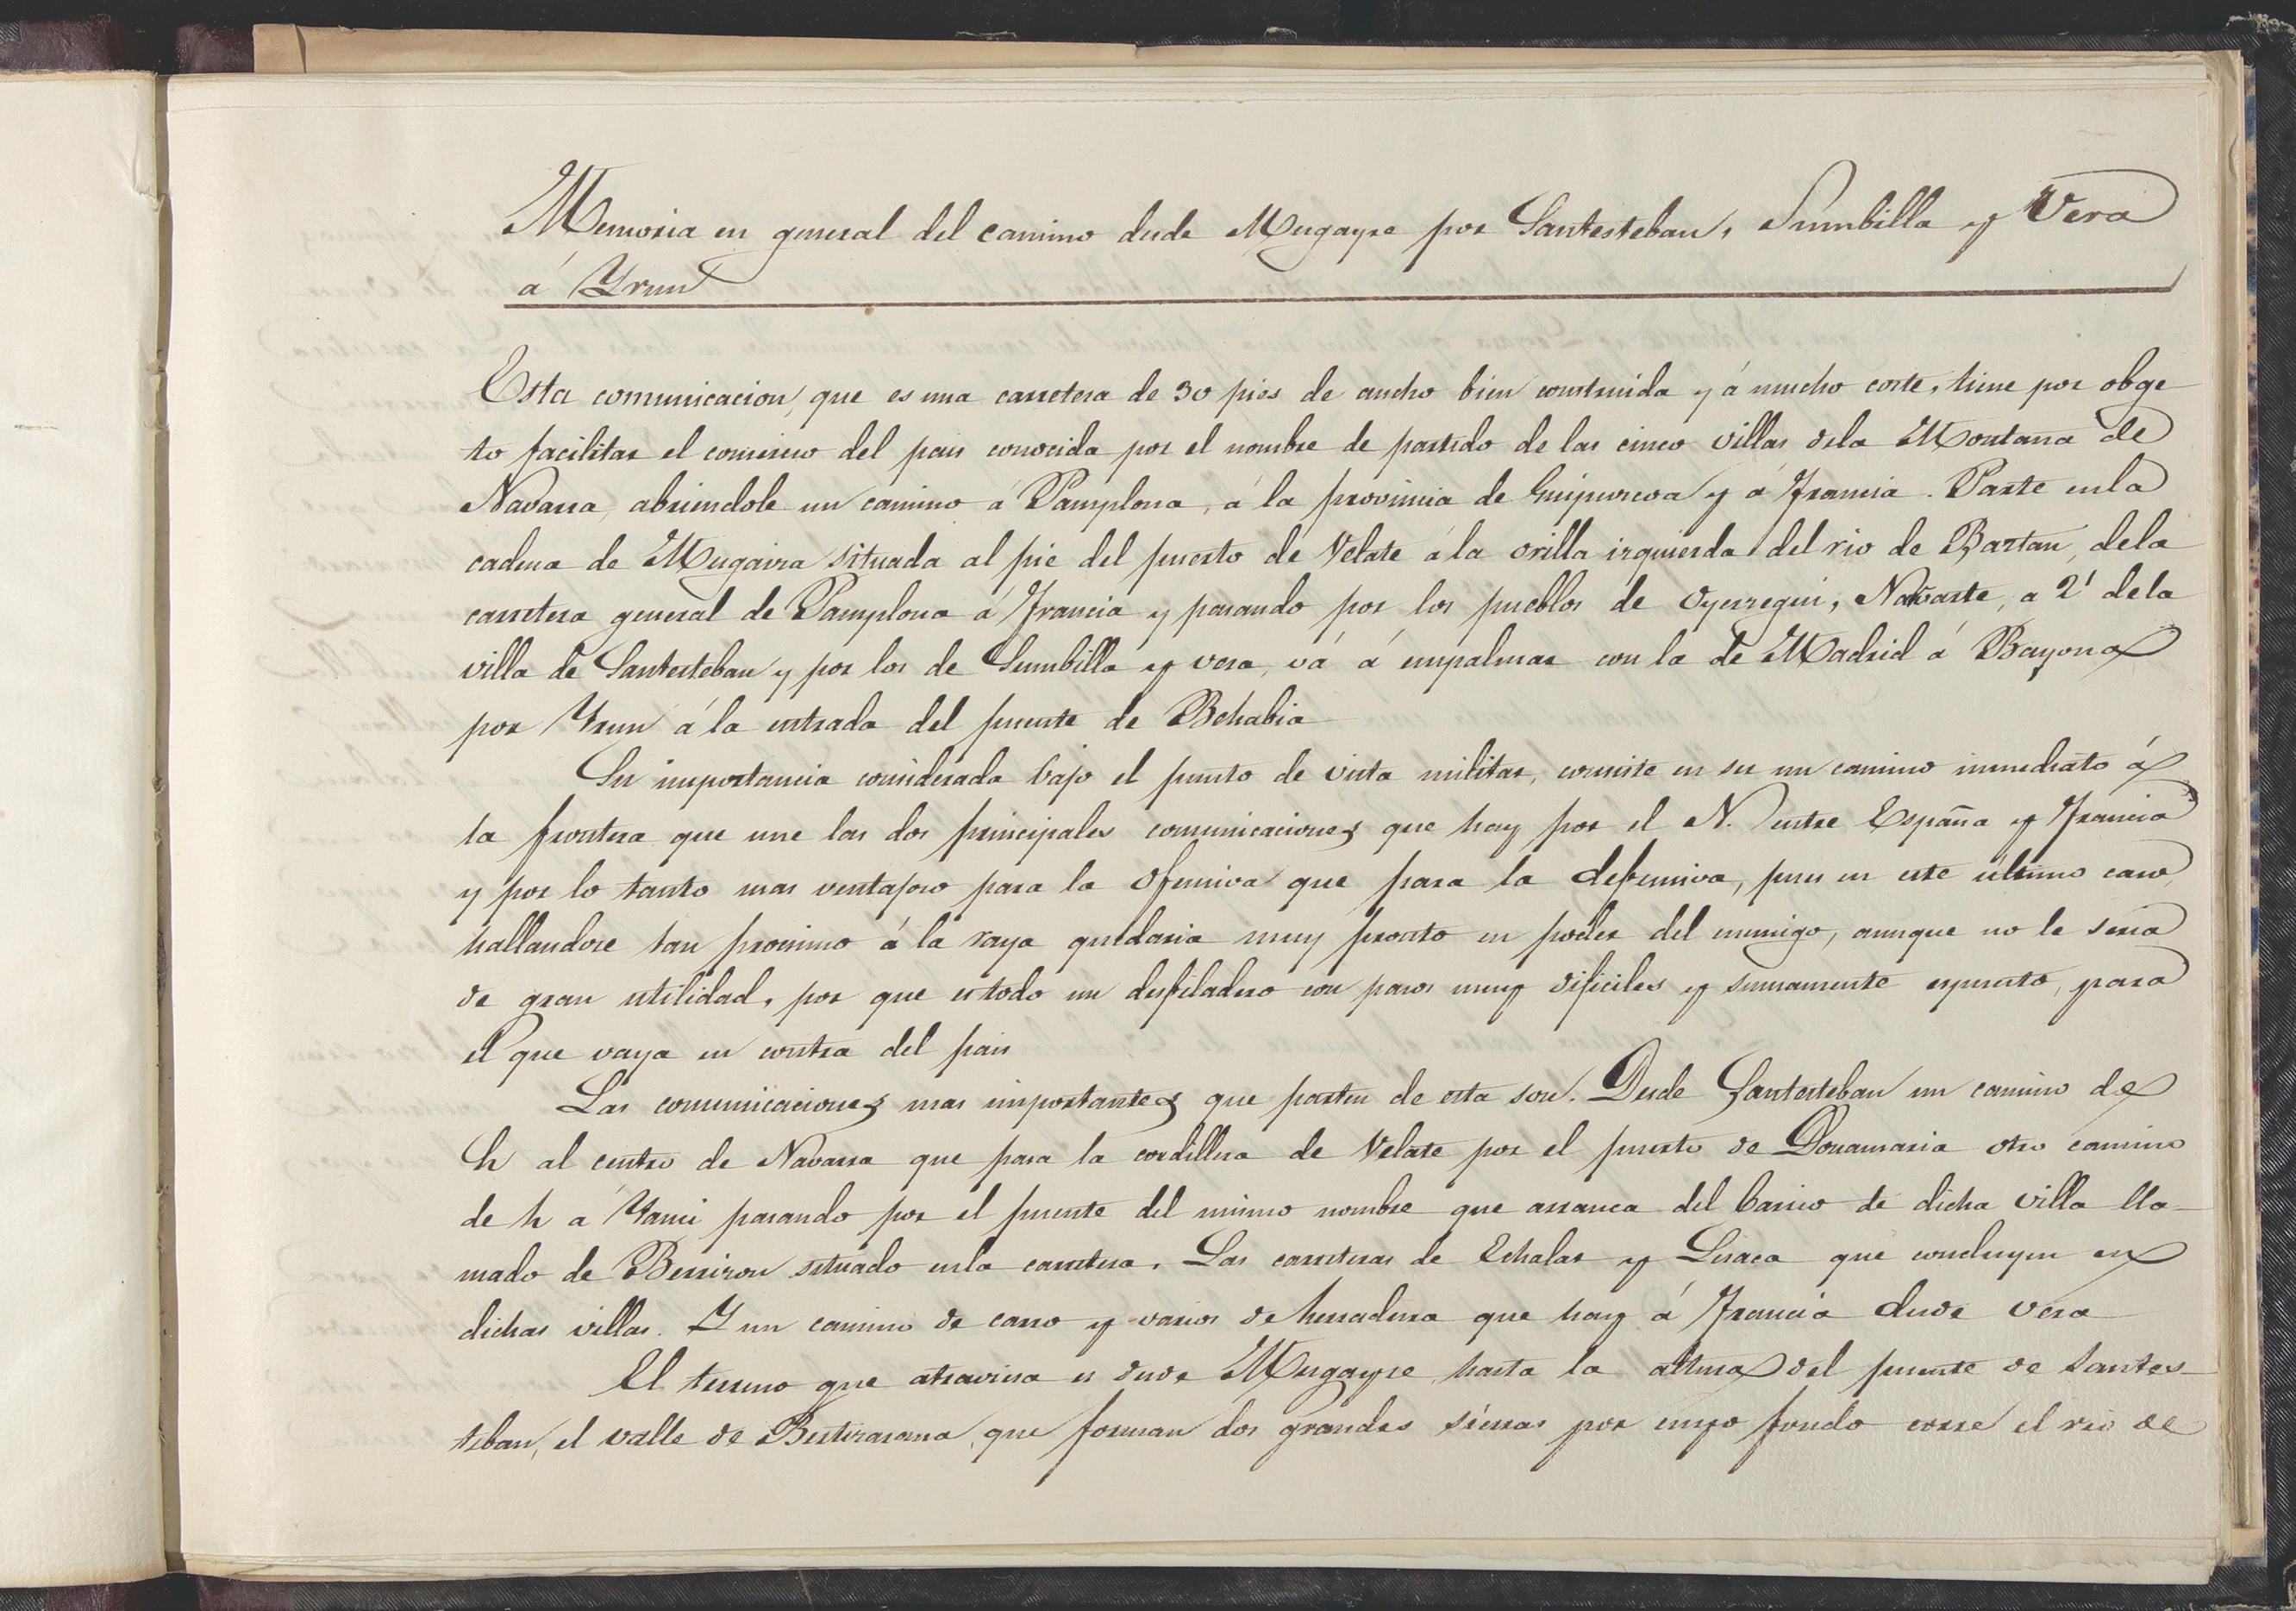 Memoria en general del camino desde Mugayre por Santesteban, Sumbilla y Vera
á Yrun
Esta comunicacion, que es una carretera de 30 pies de ancho bien construida y á mucho coste, tiene por obge
to facilitar el comercio del pais conocida por el nombre de partido de las cinco villas dela Montana de
Navarra, abriendole un camino á Pamplona, á la provincia de Guipurcoa y á Francia. Parte enla
cadena de Mugaira situada al pie del puerto de Velate á la orilla izquierda del rio de Baztan, dela
carretera general de Pamplona á Francia y pasando por los pueblos de Oyerregui, Narvarte, a 2' dela
villa de Santesteban y por los de Sumbilla y vera, vá á empalmar con la de Madrid á Bayona
por Yrun á la entrada del puente de Behabia
Su importancia considerada bajo el punto de vista militar, consiste en ser un camino inmediato á
la frontera que une las dos principales comunicaciones que hay por el N. entre España y Francia
y por lo tanto mas ventajoso para la ofensiva que para la defensiva, pues en este último caso,
hallandose tan procsimo á la raya quedaria muy pronto en poder del enemigo, aunque no le seria
de gran utilidad, por que es todo un desfiladero con pasos muy dificiles y sumamente espuesto, para
el que vaya en contra del pais
Las comunicaciones mas importantes que parten de esta son. Desde Santesteban un camino de
h al centro de Navarra que pasa la cordillera de Velate por el puerto de Donamaria otro camino
de h a Yanci pasando por el puente del mismo nombre que arranca del barrio de dicha villa lla-
mado de Berrizon situado enla carretera. Las carreteras de Echalar y Lesaca que concluyen en
dichas villas. Y un camino de carro y varios de herradura que hay á Francia desde Vera
El terreno que atraviesa es desde Mugayre hasta la altura del puente de Santes-
teban, el valle de Bertizarana, que forman dos grandes sierras por cuyo fondo corre el rio de